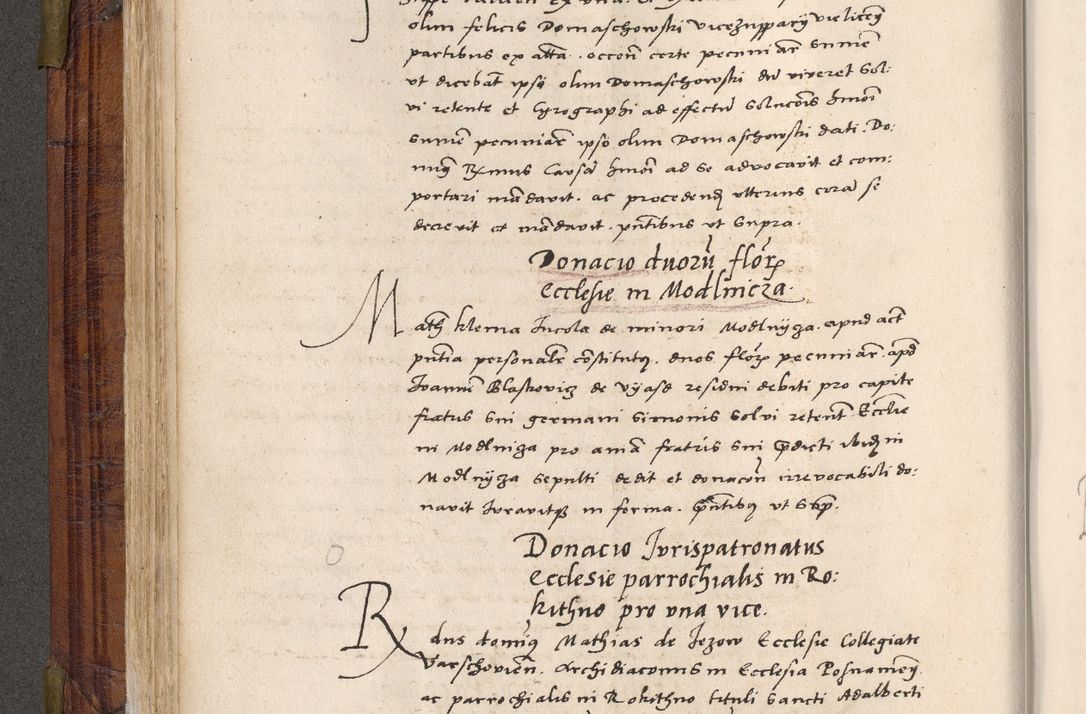 olim felicis Domaschowski vicezupparij vielicen
partibus ex alta . occoñ certe pecuniar̄ summe
ut dicebāt ipsi olim Domaschowski dū viveret sol:
vi retente et Cyrographi ad effectū solucōis hmōi
summe pecuniar̄ ipso olim Domaschowski dati . Do:
minq̄ Rmus Causā hmōi ad se advocavit et com:
portari mādavit . ac procedend ulterius corā se
decrevit et mādavit . pñtibus ut supra .
Donacio duorū flor̄
Ecclesie in Modlnicza .
Math Klema Incola de minori Modlnyza . apud act
pñtia personalr̄ cōstitutq . duos flor̄ pecuniar̄ . apd
Ioannē Blaskovicz de Vyasd residui debiti pro capite
fratris sui germani Simonis solvi retent̄ Ecclie
in Modlniza pro aniā fratris sui p̄dicti ibid in
Modlnyza sepulti dedit et donacoñ irrevocabili do:
navit Iuravitq in forma . p̄ntibq ut sup̄ .
Donacio Iurispatronatus
Ecclesie parrochialis in Ro:
kithno pro una vice .
Rdus dominq Mathias de Iezow Ecclesie Collegiate
Varschovien̄ . Archidiaconus in Ecclesia Posnanien̄
ac parrochialis in Rokithno tituli Sancti Adalberti